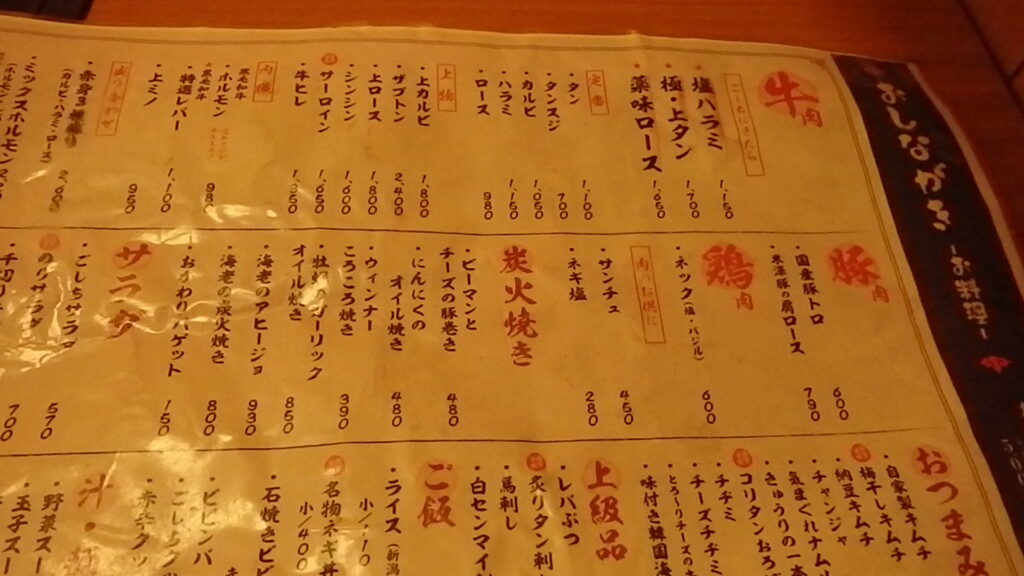 おしながき
-お料理-
牛肉
塩ハラミ 1,150
極・上タン 1,700
薬味ロース 1,650
定番
・タン 1,100
・タンスジ 700
・カルビ 1,050
・ハラミ 1,150
・ロース 980
上物
・上カルビ 1,800
・ザブトン 2,400
・上ロース 1,800
・シンシン 1,600
・サーロイン 1,650
・牛ヒレ
内臓
黒毛和牛
・ホルモン
黒毛和牛
・特選レバー 1,100
・上ミノ 950
(カルビ・ハラミ・ロース) 2,600
・ミックスホルモン
豚肉
・国産豚トロ 600
・米澤豚の肩ロース 790
鶏肉
・ネック(塩・バジル) 600
肉のお供に
・サンチュ 450
・ネギ塩 280
炭火焼き
・ピーマンと
チーズの豚巻き 480
・にんにくの
オイル焼き 480
・ウィンナー
ころころ焼き 390
・牡蠣のガーリック
オイル焼き 850
・海老のアヒージョ 930
・海老の炭火焼き 800
・おかわりバゲット 150
サラダ
・ごしちサラダ
・のりサラダ 570
700
おつまみ
・自家製キムチ
・梅干しキムチ
・納豆キムチ
・チャンジャ
・気まぐれナム
・きゅうりの一本
・コリタンおろ
・チヂミ
・チーズチヂミ
・とろーりチーズの
・味付き韓国海
上級品
・レバぶつ
・炙りタン刺
・馬刺し
・白センマイ
ご飯
・ライス(新潟
小/110
・名物ネギ丼
小/400
・石焼きビビ
・ビビンバ
汁・
・野菜スー
・玉子スー